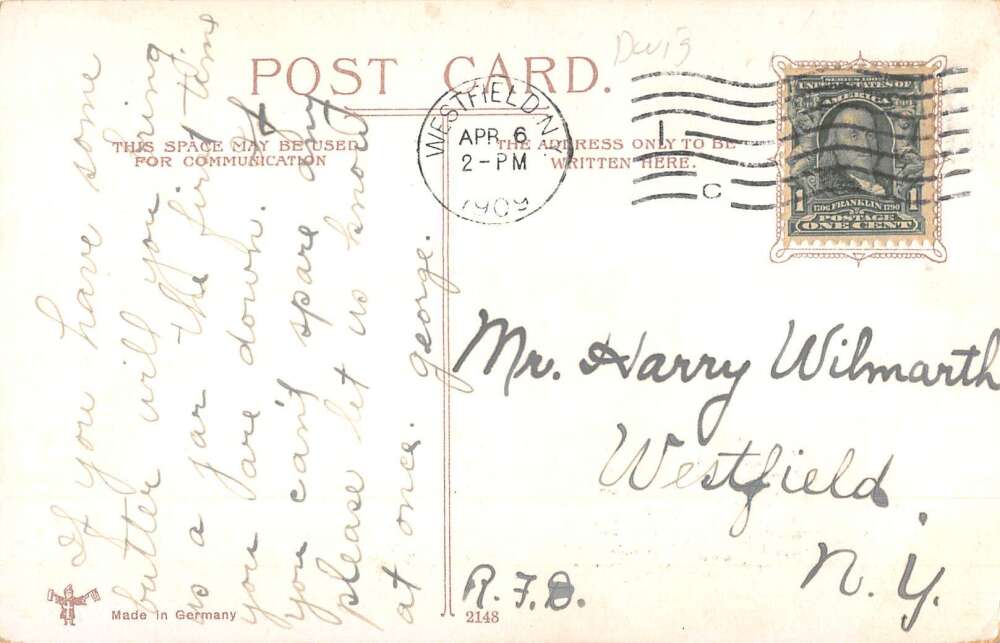 Dwig
POST CARD.
THIS SPACE MAY BE USED
FOR COMMUNICATION
THE ADDRESS ONLY TO BE
WRITTEN HERE.
WESTFIELD N
APR 6
2-PM
1909
1
C
SERIES 1902
UNITED STATES OF
AMERICA
1706 FRANKLIN 1790
POSTAGE
1 ONE CENT 1
If you have some
butter will you bring
us a jar the first time
you are down. If
you can't spare any
please let us know
at once. George.
Mr. Harry Wilmarth
Westfield
N. Y.
R. F. D.
Made in Germany
2148